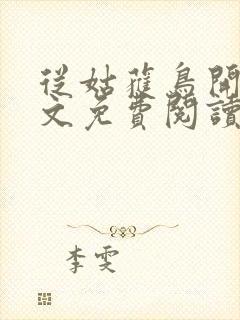 從姑蓷鳥開
文免費閱讀
李雯